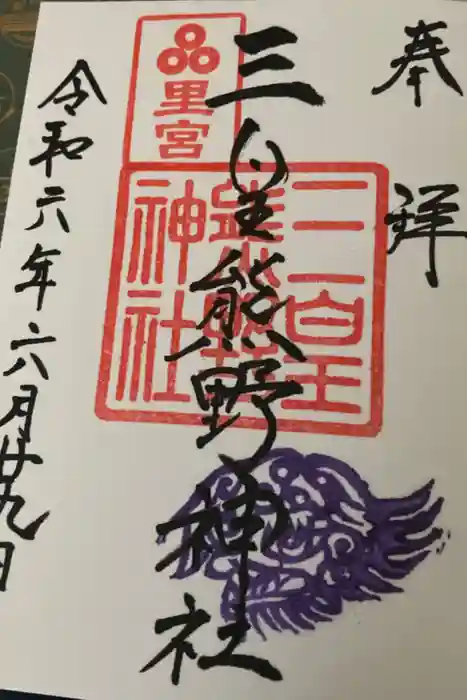 奉拝
三皇熊野神社
里宮
三皇熊野神社
令和六年六月廿九日